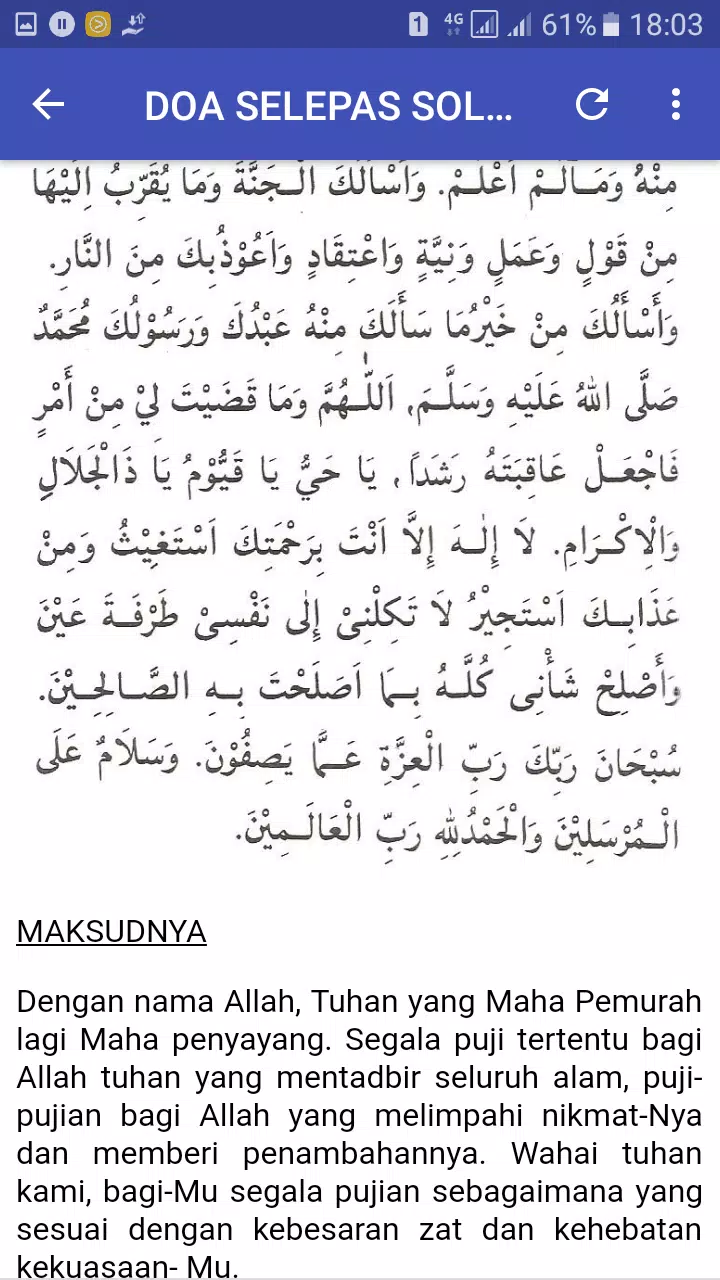 1 4G 61% 18:03
DOA SELEPAS SOL...
مِنْهُ وَمَالَمْ أَعْلَمْ. وَاَسْأَلُكَ الْجَنَّةَ وَمَا يُقَرِّبُ اِلَيْهَا
مِنْ قَوْلٍ وَعَمَلٍ وَنِيَّةٍ وَاعْتِقَادٍ وَاَعُوْذُبِكَ مِنَ النَّارِ.
وَأَسْأَلُكَ مِنْ خَيْرِمَا سَأَلَكَ مِنْهُ عَبْدُكَ وَرَسُوْلُكَ مُحَمَّدٌ
صَلَّى اللهُ عَلَيْهِ وَسَلَّمَ, اَللّٰهُمَّ وَمَا قَضَيْتَ لِيْ مِنْ أَمْرٍ
فَاجْعَلْ عَاقِبَتَهُ رَشَدًا, يَا حَيُّ يَا قَيُّوْمُ يَا ذَالْجَلَالِ
وَالْاِكْرَامِ. لَا إِلٰهَ إِلَّا اَنْتَ بِرَحْمَتِكَ اَسْتَغِيْثُ وَمِنْ
عَذَابِكَ اَسْتَجِيْرُ لَا تَكِلْنِىْ إِلٰى نَفْسِىْ طَرْفَةَ عَيْنَ
وَأَصْلِحْ شَأْنِى كُلَّهُ بِمَا اَصَلَحْتَ بِهِ الصَّالِحِيْنَ.
سُبْحَانَ رَبِّكَ رَبِّ الْعِزَّةِ عَمَّا يَصِفُوْنَ. وَسَلَامٌ عَلَى
الْمُرْسَلِيْنَ وَالْحَمْدُلِلّٰهِ رَبِّ الْعَالَمِيْنَ.
MAKSUDNYA
Dengan nama Allah, Tuhan yang Maha Pemurah
lagi Maha penyayang. Segala puji tertentu bagi
Allah tuhan yang mentadbir seluruh alam, puji-
pujian bagi Allah yang melimpahi nikmat-Nya
dan memberi penambahannya. Wahai tuhan
kami, bagi-Mu segala pujian sebagaimana yang
sesuai dengan kebesaran zat dan kehebatan
kekuasaan- Mu.